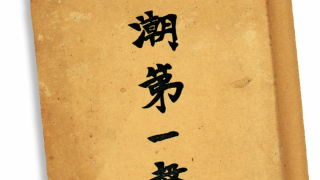 潮第一聲